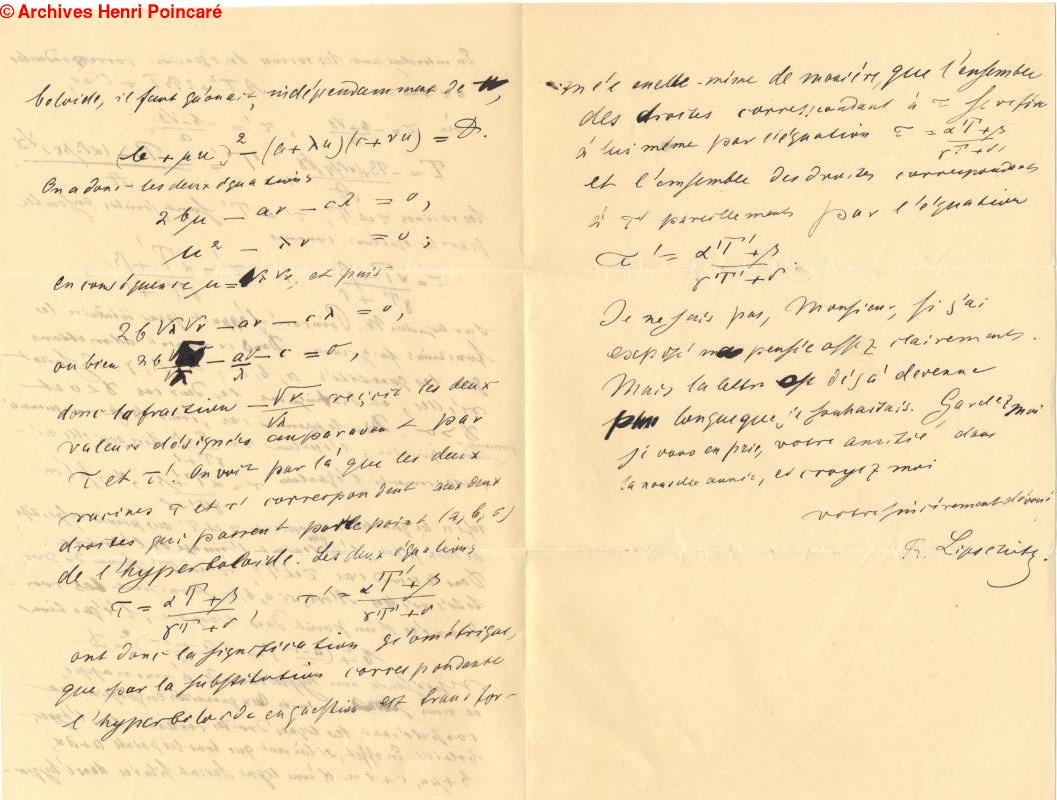 © Archives Henri Poincaré
boloide, il faut qu'on ait, indépendamment de u,
(b + μu)² − (a + λu)(c + νu) = D.
On a donc les deux équations
2bμ − aν − cλ = 0,
μ² − λν = 0;
en conséquence μ = √λ √ν, et puis
2b√λ√ν − aν − cλ = 0,
ou bien 2b √ν/√λ − aν/λ − c = 0,
donc la fraction √ν/√λ reçoit les deux
valeurs désignées auparavant par
τ et τ'. On voit par là que les deux
racines τ et τ' correspondent aux deux
droites qui passent par le point (a, b, c)
de l'hyperboloide. Les deux équations
τ = (αT + β)/(γT + δ), τ' = (αT' + β)/(γT' + δ)
ont donc la signification géométrique,
que par la substitution correspondante
l'hyperboloide en question est transfor-
mée en elle-même de manière, que l'ensemble
des droites correspondant à τ se
à lui même par l'équation τ = (αT + β)/(γT + δ)
et l'ensemble des droites correspondant
à τ' pareillement par l'équation
τ' = (αT' + β)/(γT' + δ).
Je ne sais pas, Monsieur, si j'ai
exposé ma pensée assez clairement.
Mais la lettre est déjà devenue
plus longue que je souhaitais. Gardez moi
je vous en prie, votre amitié, dans
la nouvelle année, et croyez moi
votre sincèrement dévoué
R. Lipschitz.